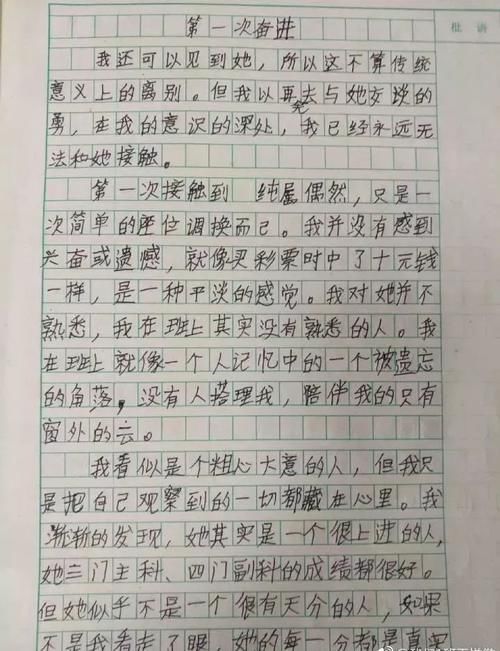 第一次奋进
批语
我还可以见到她，所以这不算传统
意义上的离别。但我以再丧去与她交谈的
勇，在我的意识的深处，我已经永远无
法和她接触。
第一次接触到 纯属偶然，只是一
次简单的座位调换而已。我并没有感到
兴奋或遗憾，就像买彩票时中了十元钱
一样，是一种平淡的感觉。我对她并不
熟悉，我在班上其实没有熟悉的人。我
在班上就像一个人记忆中的一个被遗忘
的角落，没有人搭理我，陪伴我的只有
窗外的云。
我看似是个粗心大意的人，但我只
是把自己观察到的一切都藏在心里。我
渐渐的发现，她其实是一个很上进的人，
她三门主科、四门副科的成绩都很好。
但她似乎不是一个很有天分的人，如果
不是我看走了眼，她的每一分都是真实